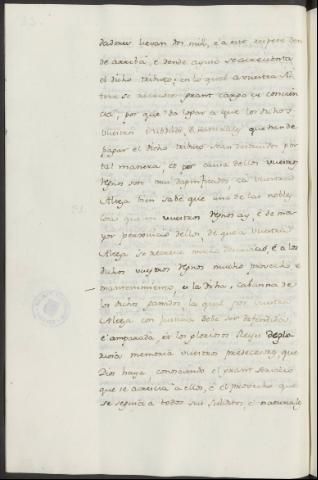 dadores lievan dos mill, é a este respeto den
de arriba, é donde ayuso se acrecienta
el dicho tributo; en lo qual a vuestra Al
teza se recresce grant cargo en concien
cia, por que da logar a que los dichos
vuestros subditos, é naturales que han de
pagar el dicho tributo sean destruidos por
tal manera, é por causa dellos vuestros
Regnos son muy dapnificados, ca vuestra
Alteza bien sabe que una de las nobles
cosas que en vuestros Regnos ay, é de ma
yor de que a vuestra
Alteza se recresce mucho é a los
dichos vuestros Regnos mucho provecho é
mantenimiento, es la dicha Cabanna de
los dichos ganados la qual por vuestra
Alteza con justicia debe ser defendida
é amparada, é los gloriosos Reyes de glo
riosa memoria vuestros predecesores, que
Dios haya, conosciendo el grant servicio
que se á ellos, é el provecho que
se seguia a todos sus subditos, é naturales